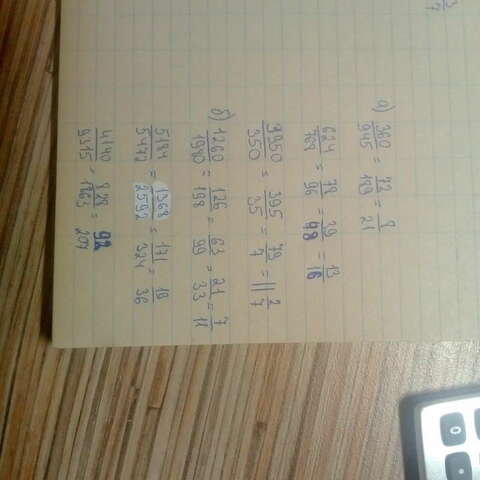 а) 360/945 = 72/189 = 8/21
624/768 = 78/96 = 39/48 = 13/16
3950/350 = 395/35 = 79/7 = 11 2/7
б) 1260/1980 = 126/198 = 63/99 = 21/33 = 7/11
5184/5472 = 1368/2592 = 171/324 = 19/36
4140/9315 = 828/1863 = 92/207